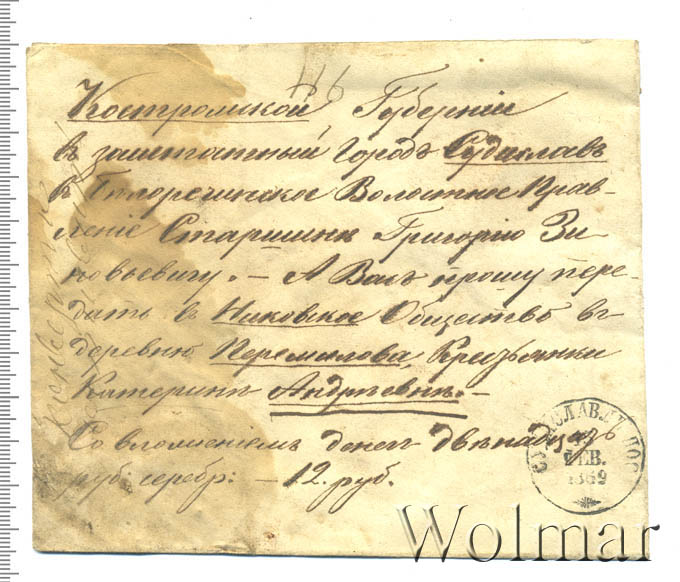 116
Костромской Губерніи
въ заштатный городъ Судиславъ
въ Белореченское Волостное Прав-
леніе Старшинѣ Григорію Зи-
новьевичу. — А Васъ прошу пере-
дать въ Никовское Общество въ
деревню Перемилова, Крестьянки
Катеринѣ Андреевнѣ. —
Со вложеніемъ денегъ двѣнадцать
руб: серебр: — 12. руб.
ФЕВ.
1869
Wolmar